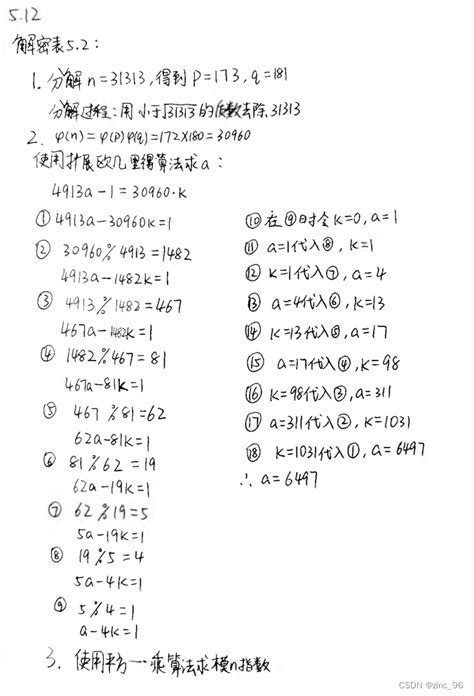 5.12
解密表5.2：
1. 分解n=31313，得到P=173，q=181
分解过程：用小于√31313的质数去除31313
2. φ(n)=φ(p)φ(q)=172×180=30960
使用扩展欧几里得算法求a：
4913a-1=30960·k
① 4913a-30960k=1
② 30960%4913=1482
4913a-1482k=1
③ 4913%1482=467
467a-1482k=1
④ 1482%467=81
467a-81k=1
⑤ 467%81=62
62a-81k=1
⑥ 81%62=19
62a-19k=1
⑦ 62%19=5
5a-19k=1
⑧ 19%5=4
5a-4k=1
⑨ 5%4=1
a-4k=1
⑩ 在⑨时令k=0，a=1
⑪ a=1代入⑧，k=1
⑫ k=1代入⑦，a=4
⑬ a=4代入⑥，k=13
⑭ k=13代入⑤，a=17
⑮ a=17代入④，k=98
⑯ k=98代入③，a=311
⑰ a=311代入②，k=1031
⑱ k=1031代入①，a=6497
∴ a=6497
3. 使用平方－乘算法求模n指数
CSDN @zinc_96